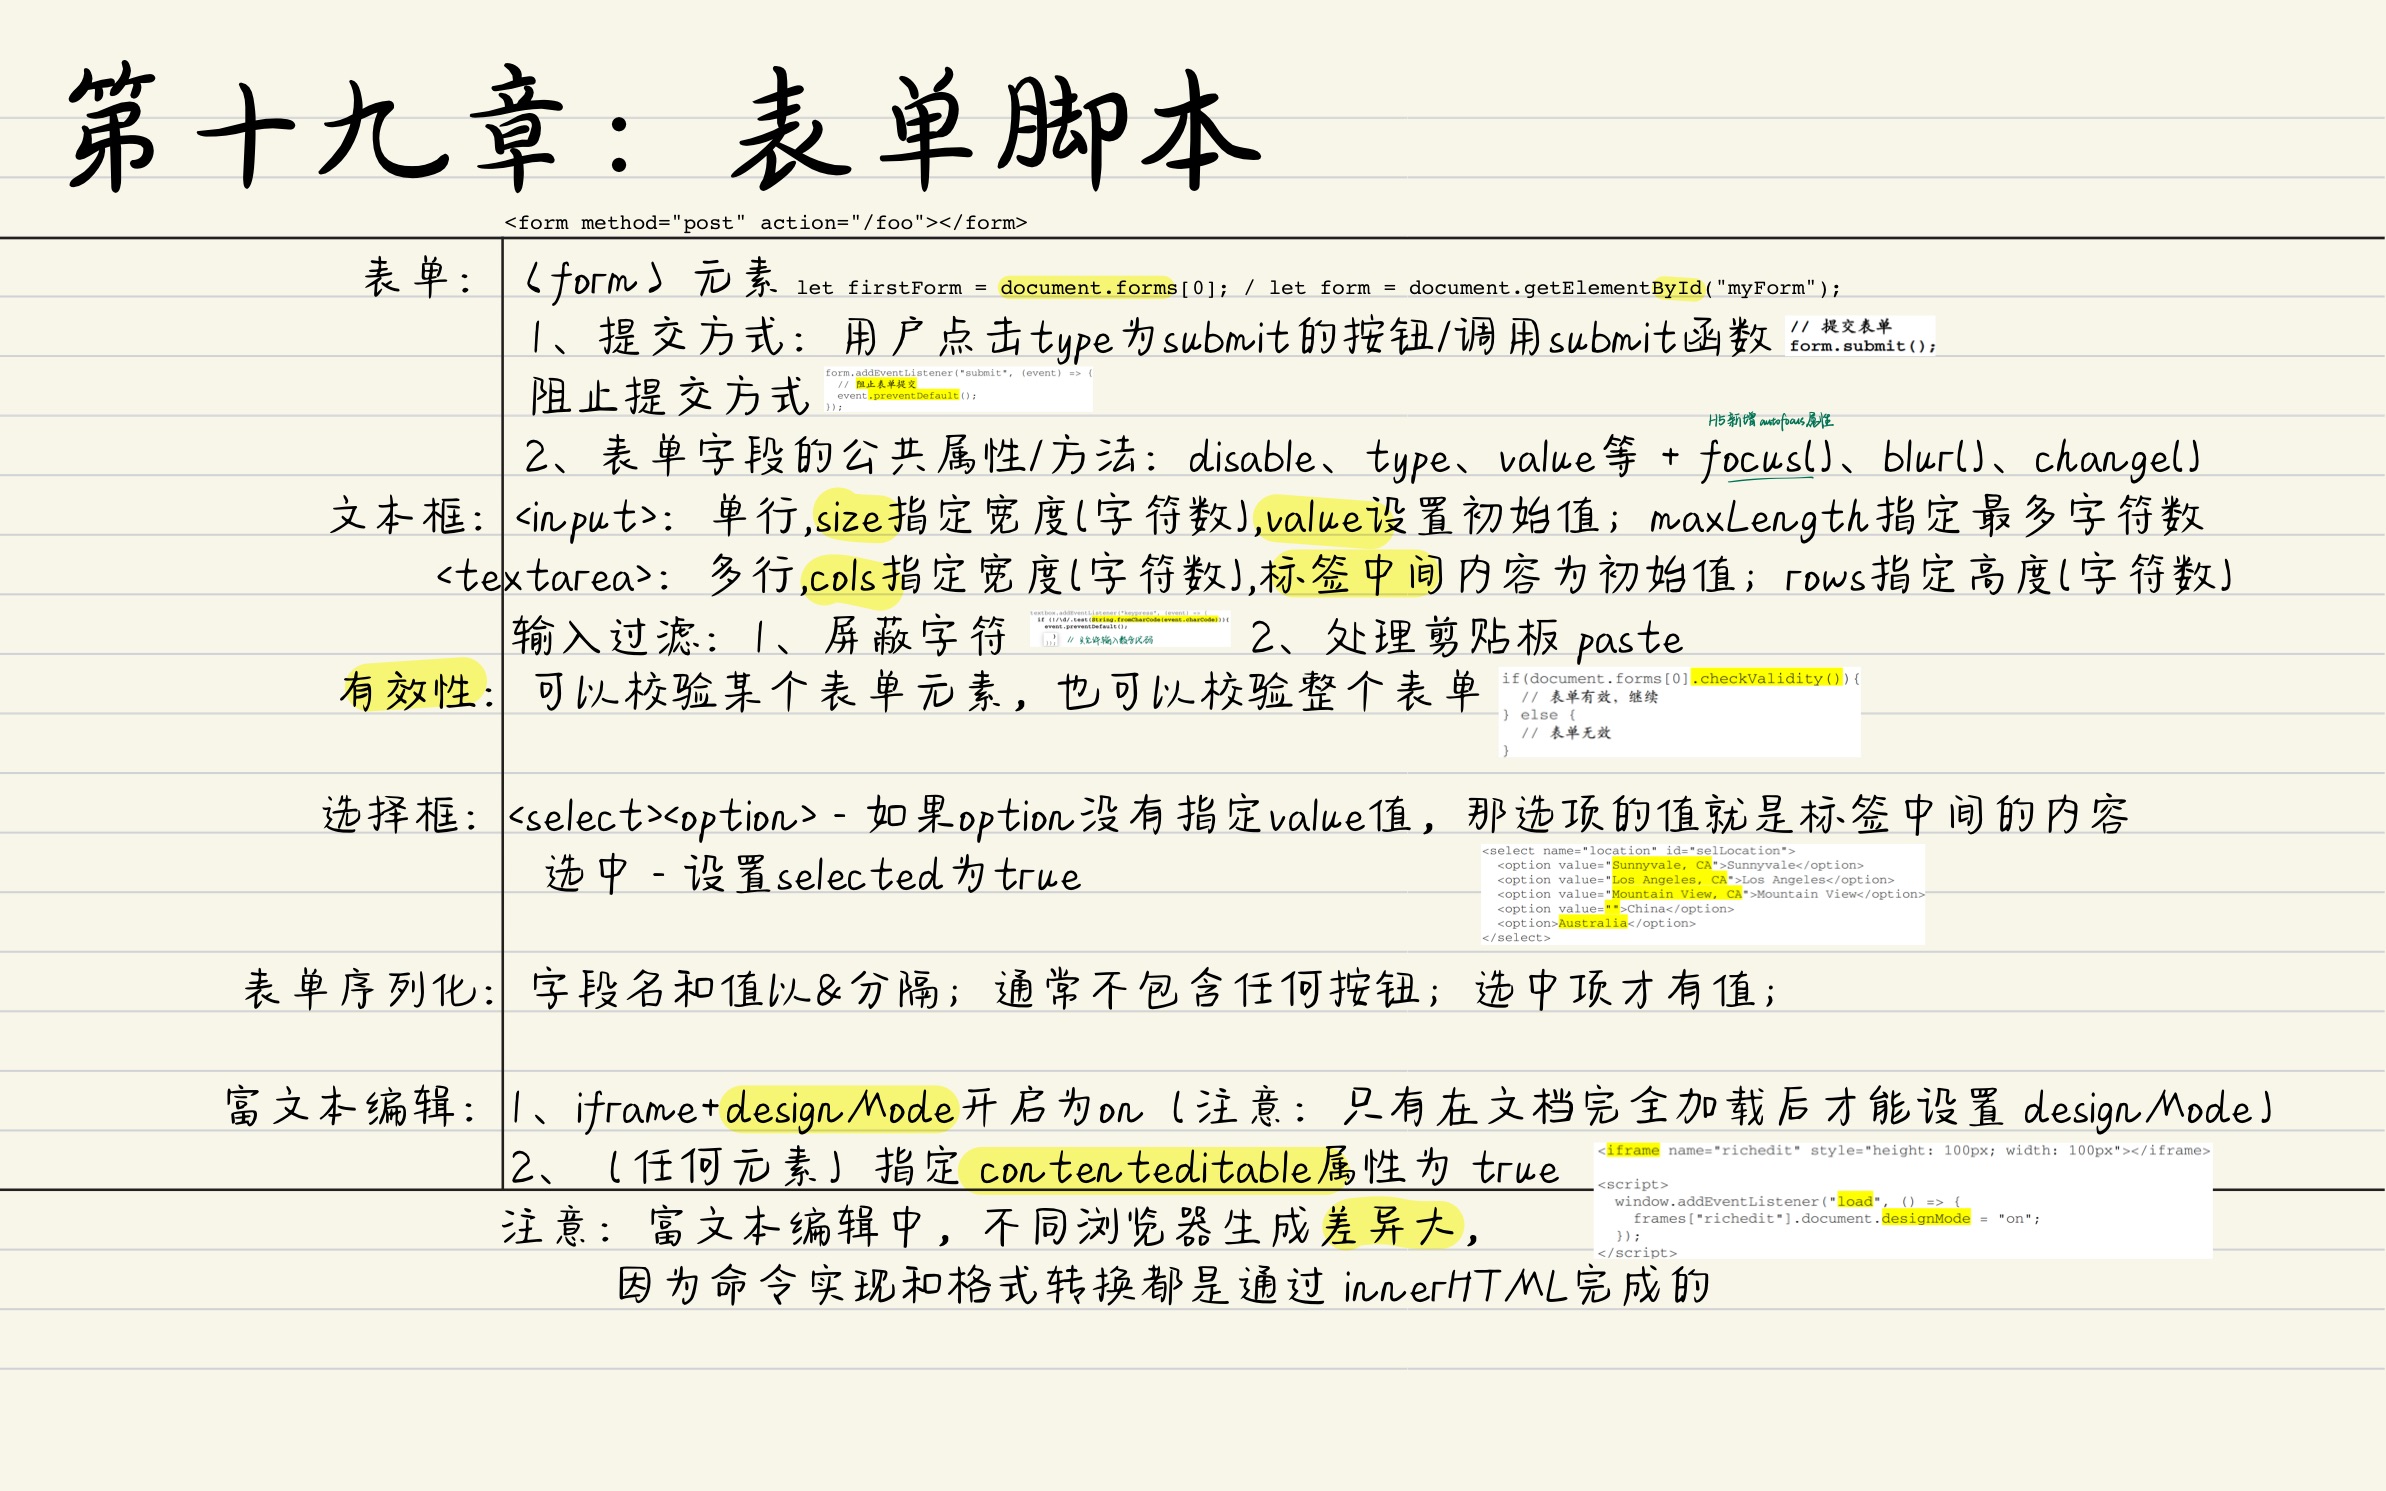 第十九章：表单脚本
<form method="post" action="/foo"></form>
表单：〈form〉元素 let firstForm = document.forms[0]; / let form = document.getElementById("myForm");
1、提交方式：用户点击type为submit的按钮/调用submit函数
// 提交表单
form.submit();
阻止提交方式
form.addEventListener("submit", (event) => {
// 阻止表单提交
event.preventDefault();
});
H5新增autofocus属性
2、表单字段的公共属性/方法：disable、type、value等 + focus()、blur()、change()
文本框：<input>：单行,size指定宽度(字符数),value设置初始值；maxLength指定最多字符数
<textarea>：多行,cols指定宽度(字符数),标签中间内容为初始值；rows指定高度(字符数)
输入过滤：1、屏蔽字符
textbox.addEventListener("keypress", (event) => {
if (!/\d/.test(String.fromCharCode(event.charCode))){
event.preventDefault();
}
// 只允许输入数字
2、处理剪贴板 paste
有效性：可以校验某个表单元素，也可以校验整个表单
if(document.forms[0].checkValidity()){
// 表单有效，继续
} else {
// 表单无效
}
选择框：<select><option> - 如果option没有指定value值，那选项的值就是标签中间的内容
选中 - 设置selected为true
<select name="location" id="selLocation">
<option value="Sunnyvale, CA">Sunnyvale</option>
<option value="Los Angeles, CA">Los Angeles</option>
<option value="Mountain View, CA">Mountain View</option>
<option value="">China</option>
<option>Australia</option>
</select>
表单序列化：字段名和值以&分隔；通常不包含任何按钮；选中项才有值；
富文本编辑：1、iframe+designMode开启为on（注意：只有在文档完全加载后才能设置 designMode）
2、（任何元素）指定 contenteditable属性为 true
<iframe name="richedit" style="height: 100px; width: 100px"></iframe>
<script>
window.addEventListener("load", () => {
frames["richedit"].document.designMode = "on";
});
</script>
注意：富文本编辑中，不同浏览器生成差异大，
因为命令实现和格式转换都是通过 innerHTML完成的